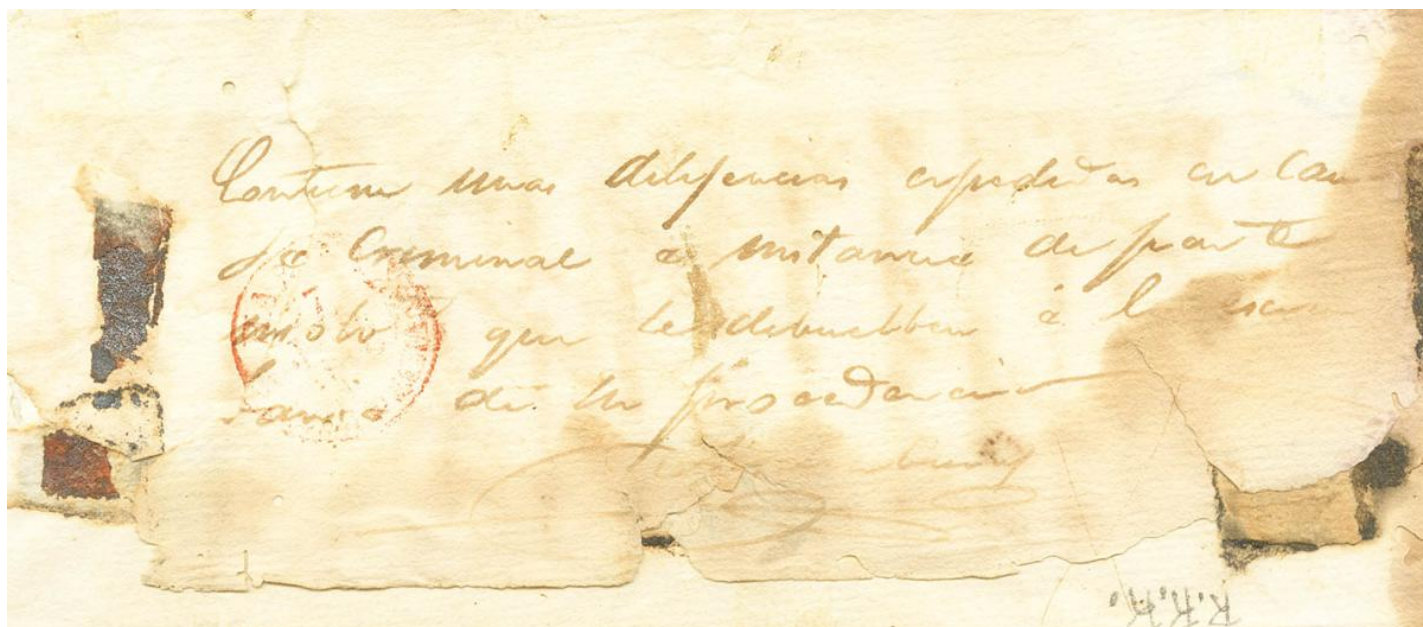 Contiene unas diligencias expedidas en Cau
sa Criminal a instancia de parte
que se debuelben á la escri
bania de su procedencia
R.R.R.